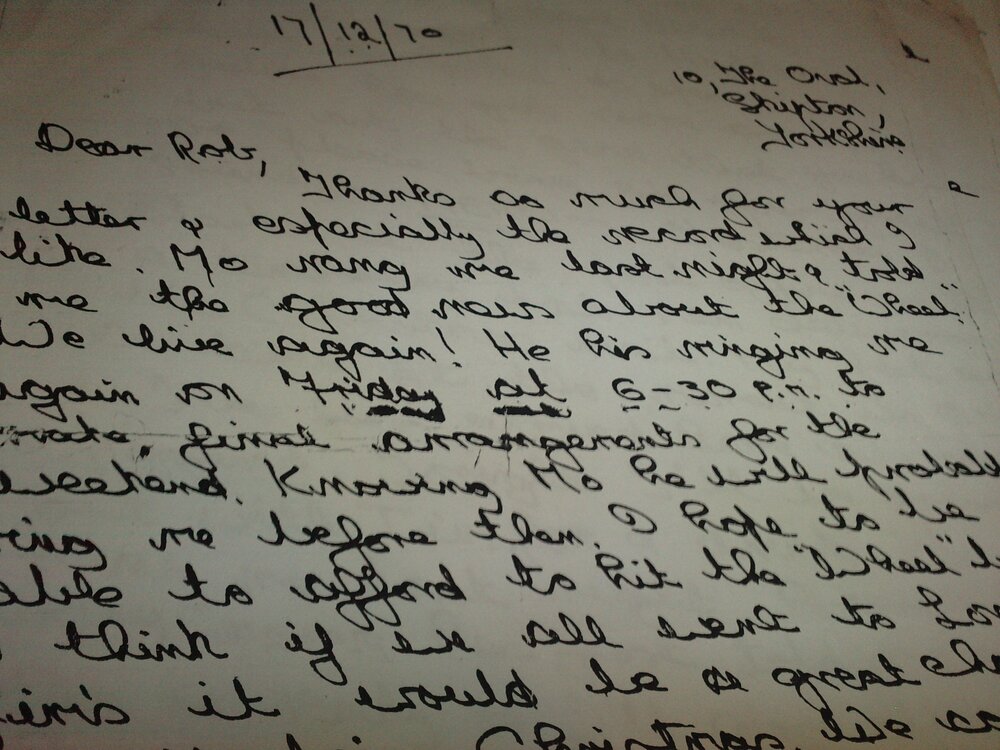 17/12/70
10, The Oval,
Shipton,
Yorkshire
Dear Rob,
Thanks so much for your
letter & especially the record which I
like. Mo rang me last night & told
me the good news about the "Wheel".
We live again! He his ringing me
again on Friday at 6-30 p.m. to
make final arrangements for the
weekend. Knowing Mo he will probabl
ring me before then. I hope to be
able to afford to hit the "Wheel"
think if we all went to
it would be a great
Christmas We